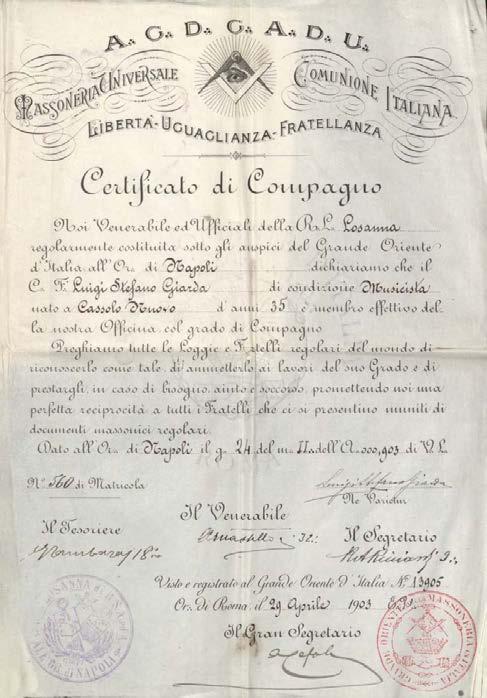 A. G. D. G. A. D. U.
MASSONERIA UNIVERSALE COMUNIONE ITALIANA
LIBERTÀ-UGUAGLIANZA-FRATELLANZA
Certificato di Compagno
Noi Venerabile ed Ufficiali della R. L. Losanna
regolarmente costituita sotto gli auspici del Grande Oriente
d'Italia all'Or. di Napoli dichiariamo che il
C. F. Luigi Stefano Giarda di condizione Musicista
nato a Cassolo Nuovo d'anni 35 è membro effettivo del-
la nostra Officina col grado di Compagno
Preghiamo tutte le Loggie e Fratelli regolari del mondo di
riconoscerlo come tale, di ammetterlo ai lavori del suo Grado e di
prestargli, in caso di bisogno, aiuto e soccorso, promettendo noi una
perfetta reciprocità a tutti i Fratelli che ci si presentino muniti di
documenti massonici regolari.
Dato all'Or. di Napoli il g. 24 del m. II. dell'A. 000,903 di V. L.
N.° 560 di Matricola Luigi Stefano Giarda
Ne Varietur
Il Venerabile
Il Tesoriere Il Segretario
18 32
Visto e registrato al Grande Oriente d'Italia N.° 13905
Or. di Roma, il 29 Aprile 1903 E. V.
Il Gran Segretario
LOSANNA
NAPOLI
GRANDE ORIENTE MASSONERIA